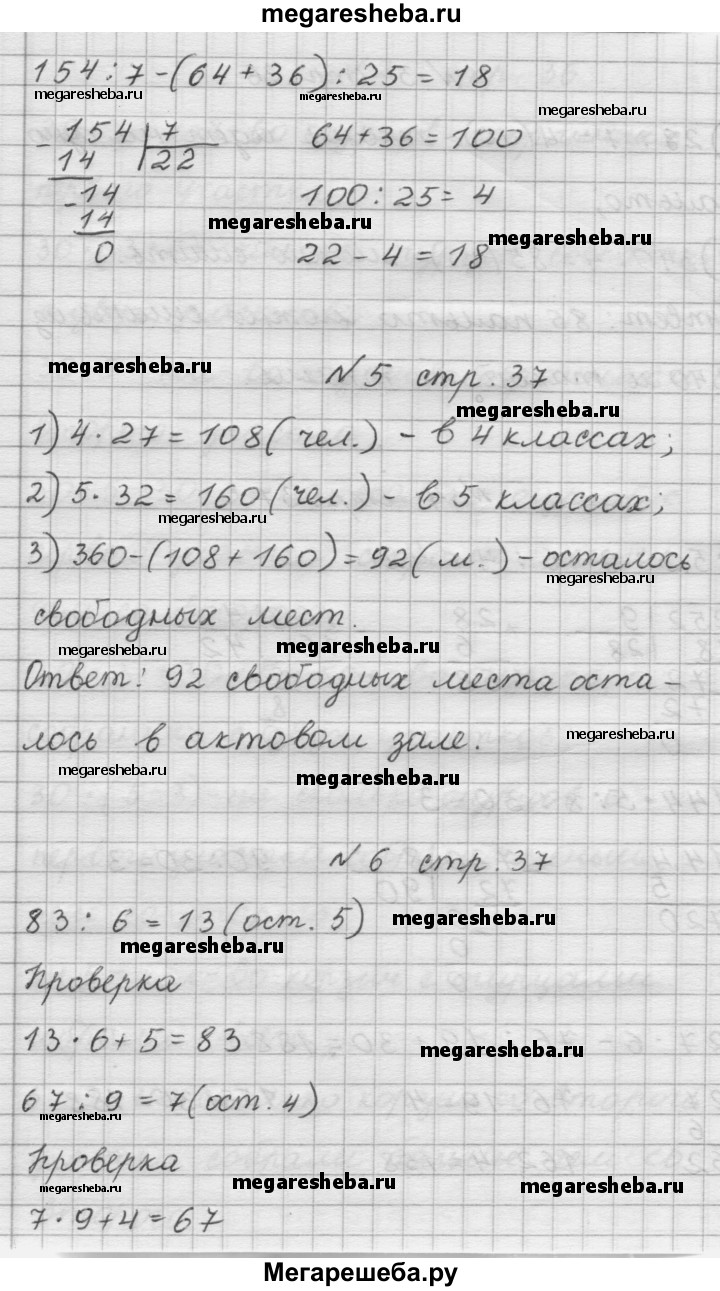 megaresheba.ru
154 : 7 - (64 + 36) : 25 = 18
megaresheba.ru megaresheba.ru megaresheba.ru
- 154 | 7 64 + 36 = 100
14 22
- 14 100 : 25 = 4
14 megaresheba.ru megaresheba.ru
0 22 - 4 = 18
megaresheba.ru № 5 стр. 37
megaresheba.ru
1) 4 · 27 = 108 (чел.) - в 4 классах;
2) 5 · 32 = 160 (чел.) - в 5 классах;
megaresheba.ru
3) 360 - (108 + 160) = 92 (м.) - осталось
megaresheba.ru
свободных мест.
megaresheba.ru megaresheba.ru
Ответ: 92 свободных места оста-
лось в актовом зале.
megaresheba.ru
megaresheba.ru megaresheba.ru
№ 6 стр. 37
83 : 6 = 13 (ост. 5) megaresheba.ru
megaresheba.ru
Проверка
13 · 6 + 5 = 83 megaresheba.ru
67 : 9 = 7 (ост. 4)
megaresheba.ru
Проверка
megaresheba.ru megaresheba.ru megaresheba.ru
7 · 9 + 4 = 67
Мегарешеба.ру